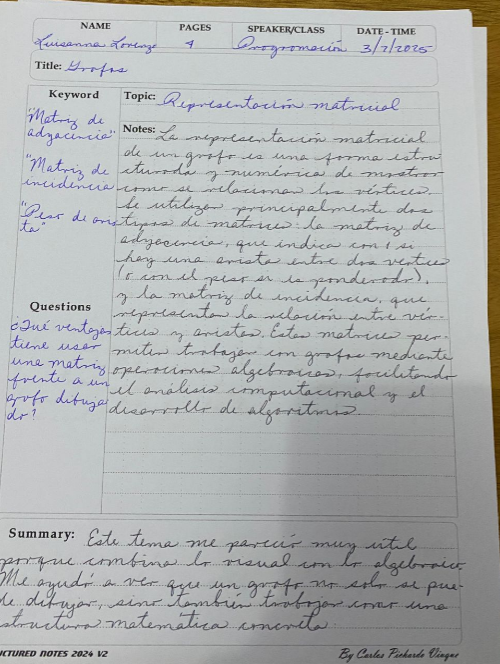 NAME PAGES SPEAKER/CLASS DATE - TIME
Luisanna Lorenzo 4 Programación 3/7/2025
Title: Grafos
Keyword
"Matriz de
adyacencia"
"Matriz de
incidencia
"Peso de aris
ta"
Questions
¿Qué ventajas
tiene usar
una matriz
frente a un
grafo dibuja
do?
Topic: Representación matricial
Notes: La representación matricial
de un grafo es una forma estru
cturada y numérica de mostrar
como se relacionan los vértices.
Se utilizan principalmente dos
tipos de matrices: la matriz de
adyacencia, que indica con 1 si
hay una arista entre dos vértice
(o con el peso si es ponderado),
y la matriz de incidencia, que
representan la relación entre vér-
tices y aristas. Estas matrices per-
miten trabajar con grafos mediante
operaciones algebraicas, facilitando
el análisis computacional y el
desarrollo de algoritmos.
Summary: Este tema me pareció muy útil
porque combina lo visual con lo algebraico.
Me ayudó a ver que un grafo no solo se pue-
de dibujar, sino también trabajar como una
structura matemática concreta.
UCTURED NOTES 2024 V2 By Carlos Pichardo Viuque